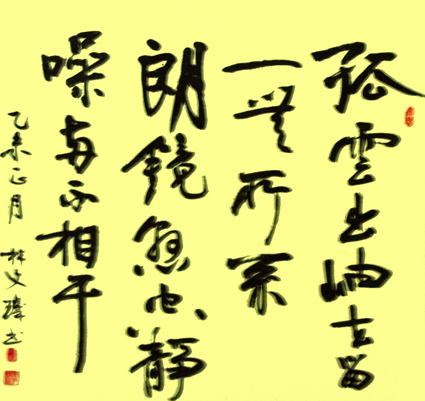 孤雲出岫去留
一無所系
朗鏡懸空靜
噪两不相干
乙未正月 林文 书